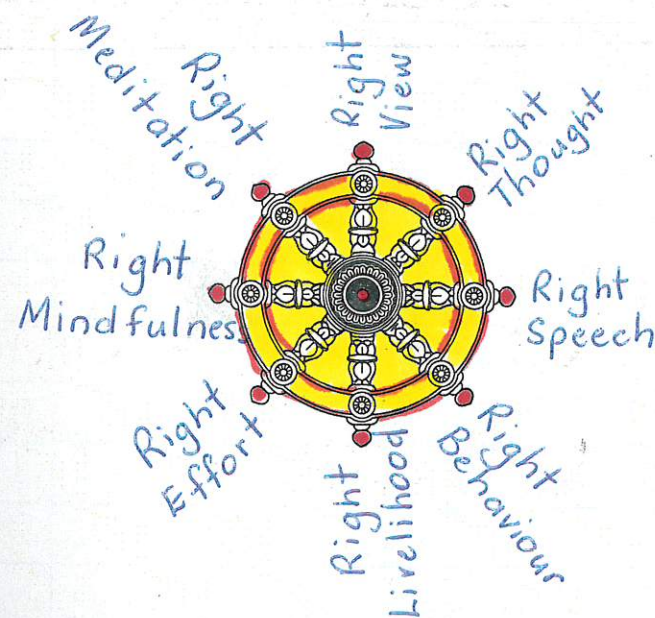 Right
View
Right
Thought
Right
Speech
Right
Behaviour
Right
Livelihood
Right
Effort
Right
Mindfulness
Right
Meditation